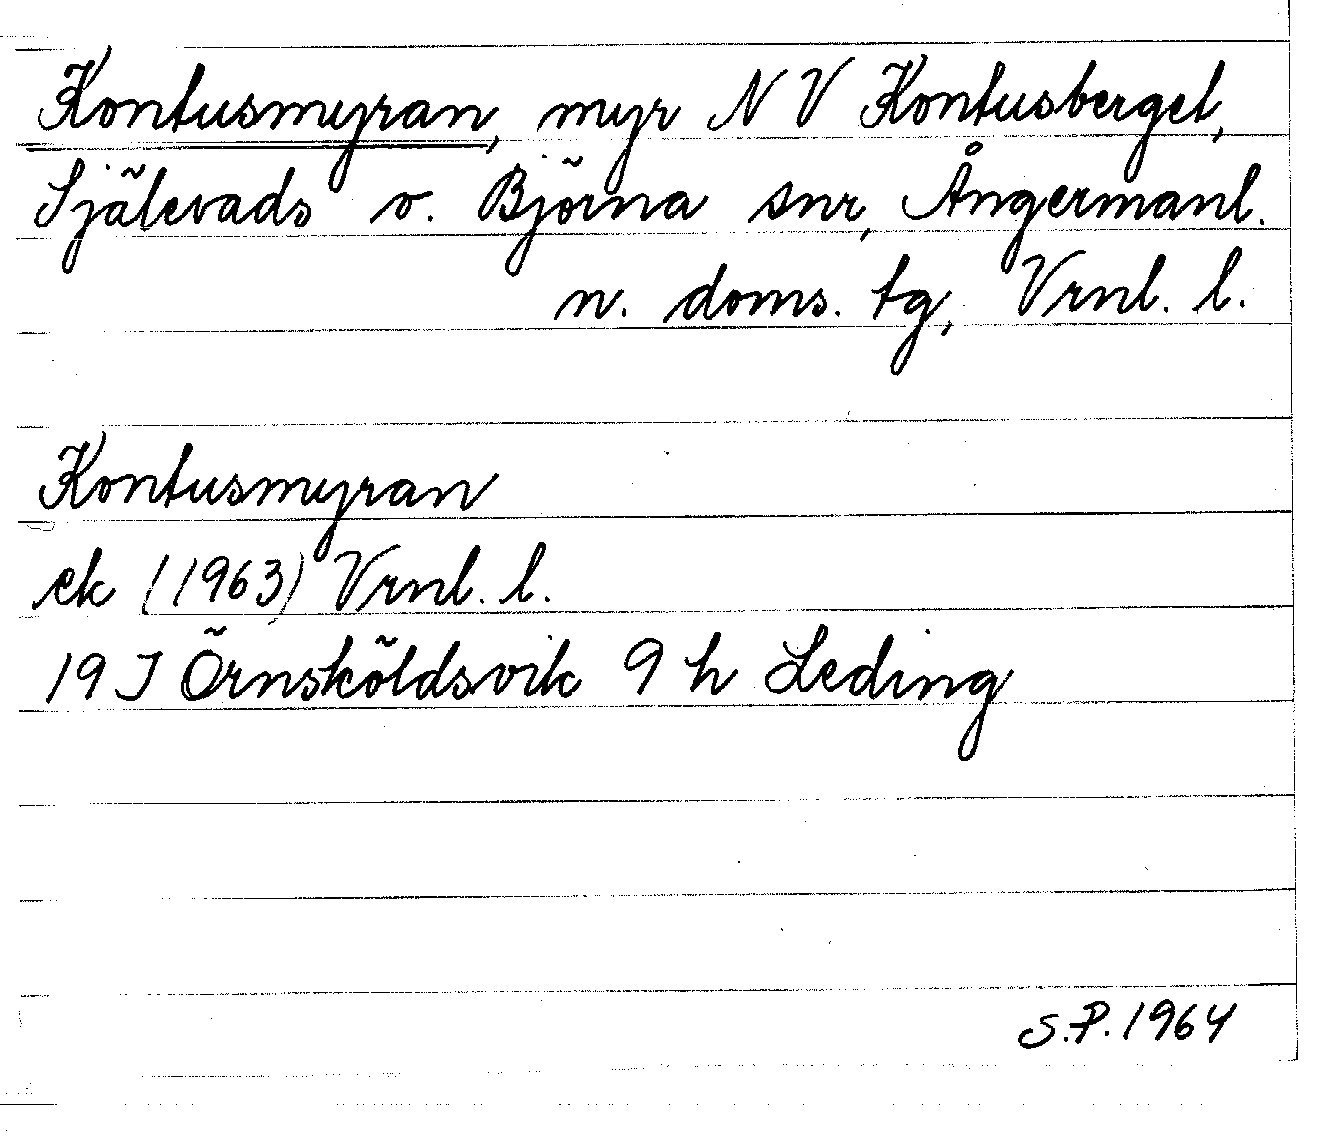 Kontusmyran, myr NV Kontusberget,
Själevads o. Björna snr, Ångermanl.
n. doms. tg, Vrnl. l.
Kontusmyran
ek (1963) Vrnl. l.
19 J Örnsköldsvik 9 h Leding
S.P. 1964